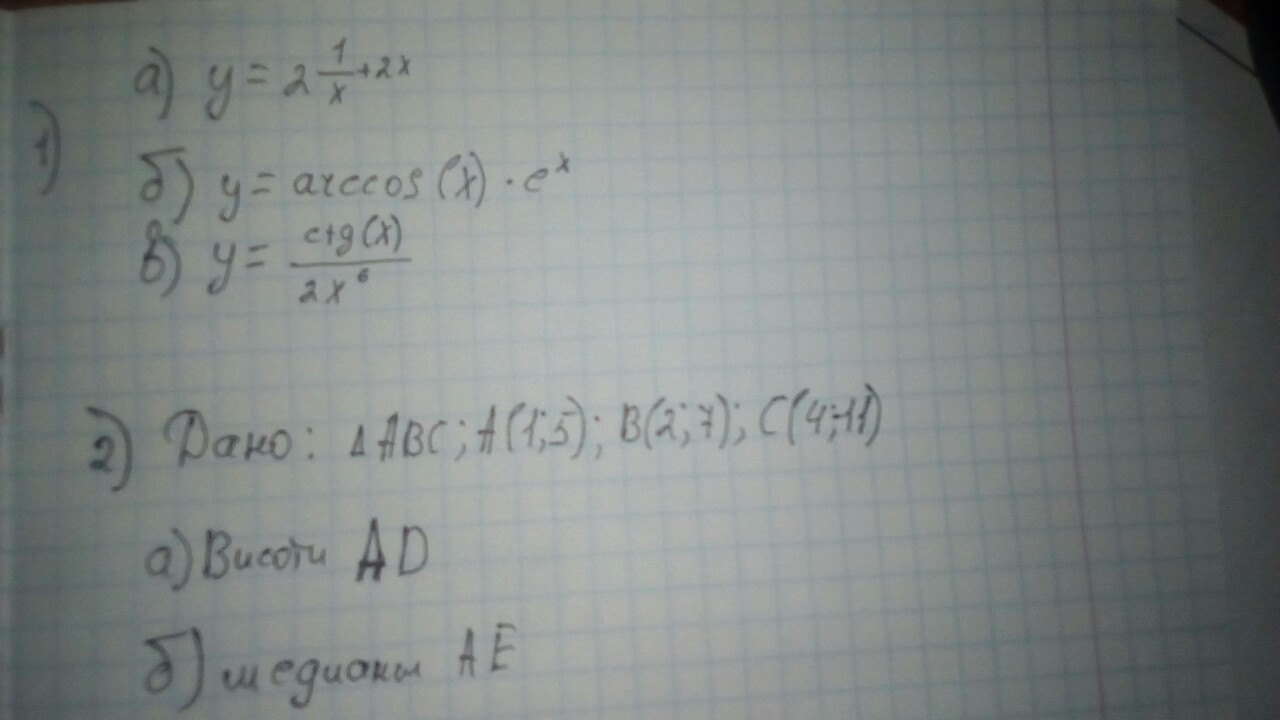 1)
а) y = 2^(1/x + 2x)
б) y = arccos(x) · e^x
в) y = ctg(x) / 2x^6
2) Дано: ΔABC; A(1;5); B(2;7); C(4;-11)
а) Висоти AD
б) медианы AE